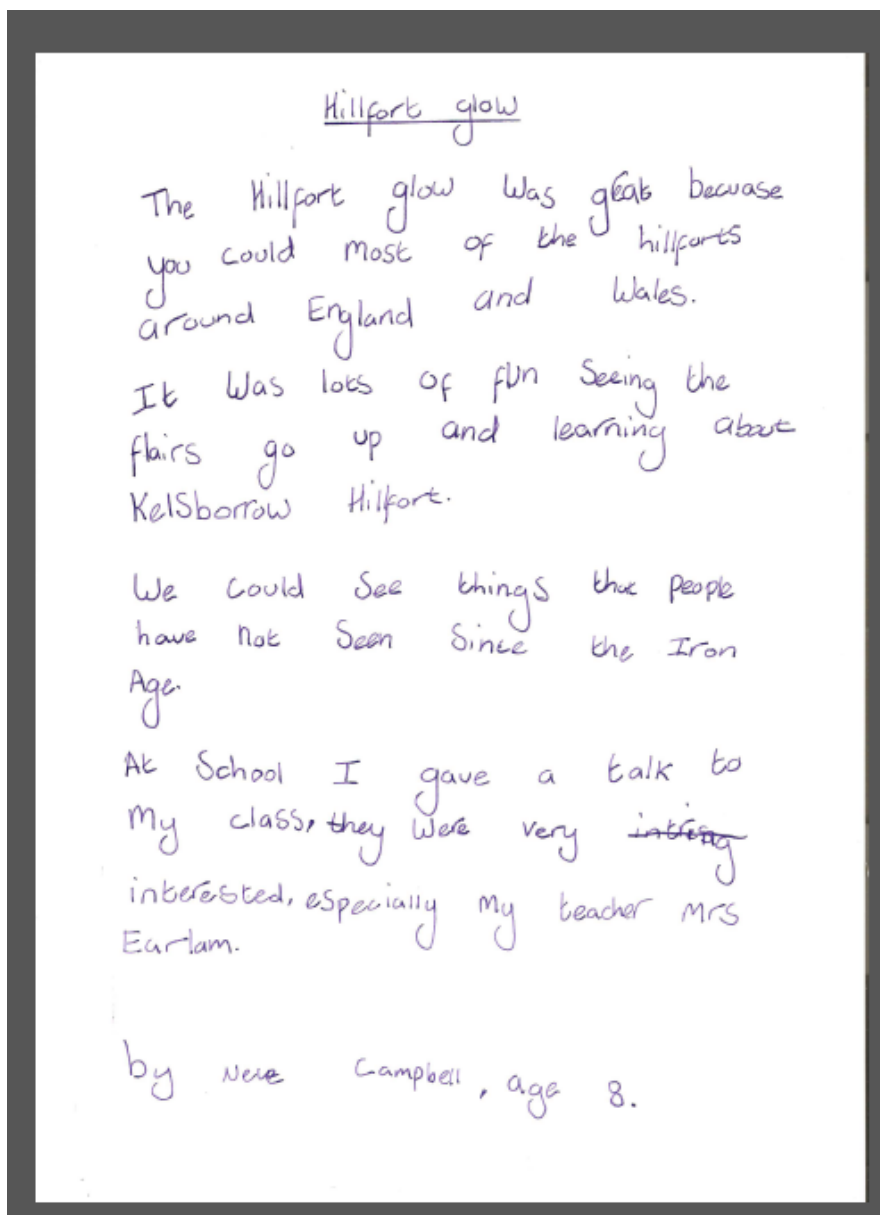 Hillfort glow
The Hillfort glow was great becuase
you could most of the hillforts
around England and Wales.
It was lots of fun Seeing the
flairs go up and learning about
KelSborrow Hilfort.
We could See things that people
have not Seen Since the Iron
Age.
At School I gave a talk to
My class, they were very
interested, especially my teacher Mrs
Earlam.
by Campbell, age 8.